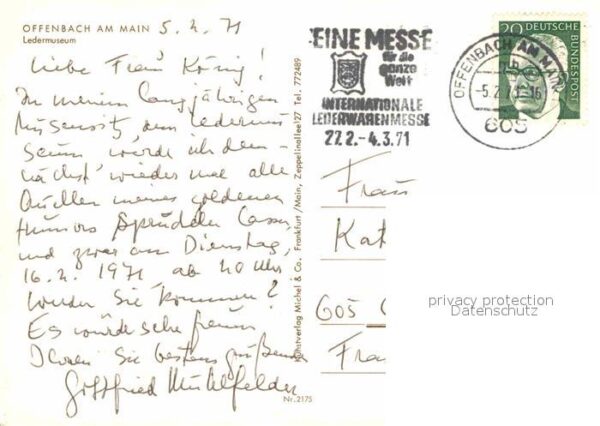 OFFENBACH AM MAIN 5.2.71
Ledermuseum
Liebe Frau König!
In meinem langjährigen
Musensitz, dem Ledermu
seum würde ich dem-
nächst wieder mal alle
Quellen meines goldenen
Humors sprudeln lassen,
und zwar am Dienstag,
16.2.1971 ab 20 Uhr
Werden Sie kommen?
Es würde sehr freuen
Ihren Sie bestens grüßenden
Gottfried
Kunstverlag Michel & Co. Frankfurt/Main, Zeppelinallee 127 Tel. 772489
Nr. 2175
EINE MESSE
für die
ganze
Welt
INTERNATIONALE
LEDERWARENMESSE
27.2.-4.3.71
OFFENBACH AM MAIN
-5.2.71-16
605
20 DEUTSCHE
BUNDESPOST
Frau
Kat
605
Fra
privacy protection
Datenschutz